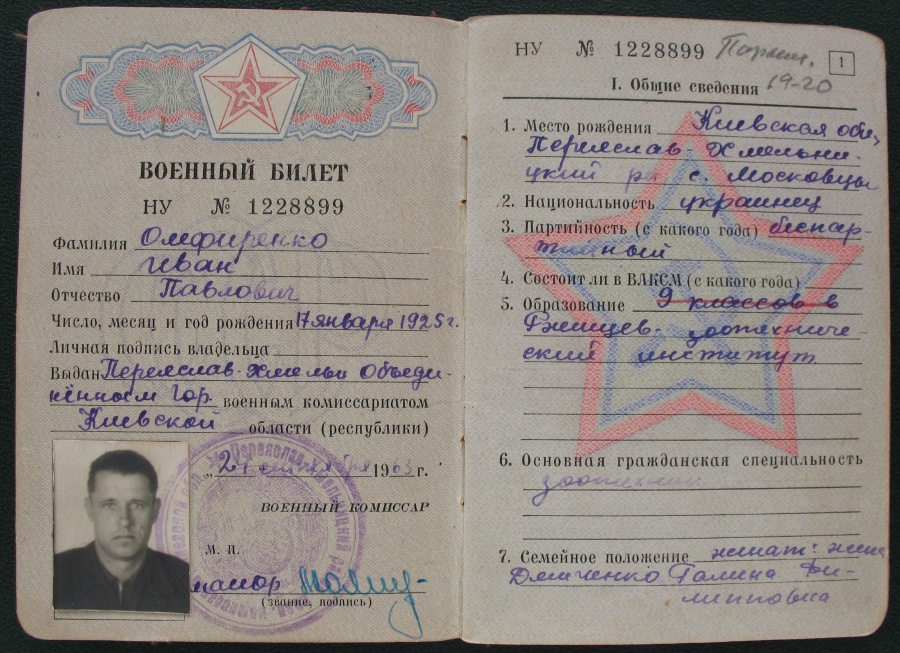 ВОЕННЫЙ БИЛЕТ
НУ № 1228899
Фамилия Омфиренко
Имя Иван
Отчество Павлович
Число, месяц и год рождения 17 января 1925 г.
Личная подпись владельца
Выдан Переяслав-Хмельн Объеди-
нённым Гор. военным комиссариатом
Киевской области (республики)
„2 1963 г.
ВОЕННЫЙ КОМИССАР
М. П.
майор
(звание, подпись)
НУ № 1228899
19-20
1
I. Общие сведения
1. Место рождения Киевская обл,
Переяслав-Хмельни-
цкий р с. Московцы
2. Национальность украинец
3. Партийность (с какого года) беспар-
тийный
4. Состоит ли в ВЛКСМ (с какого года)
5. Образование 9 классов в
Ржищев- зоотехниче-
ский институт
6. Основная гражданская специальность
зоотехник
7. Семейное положение женат: жена
Демченко Галина Фи-
липповна